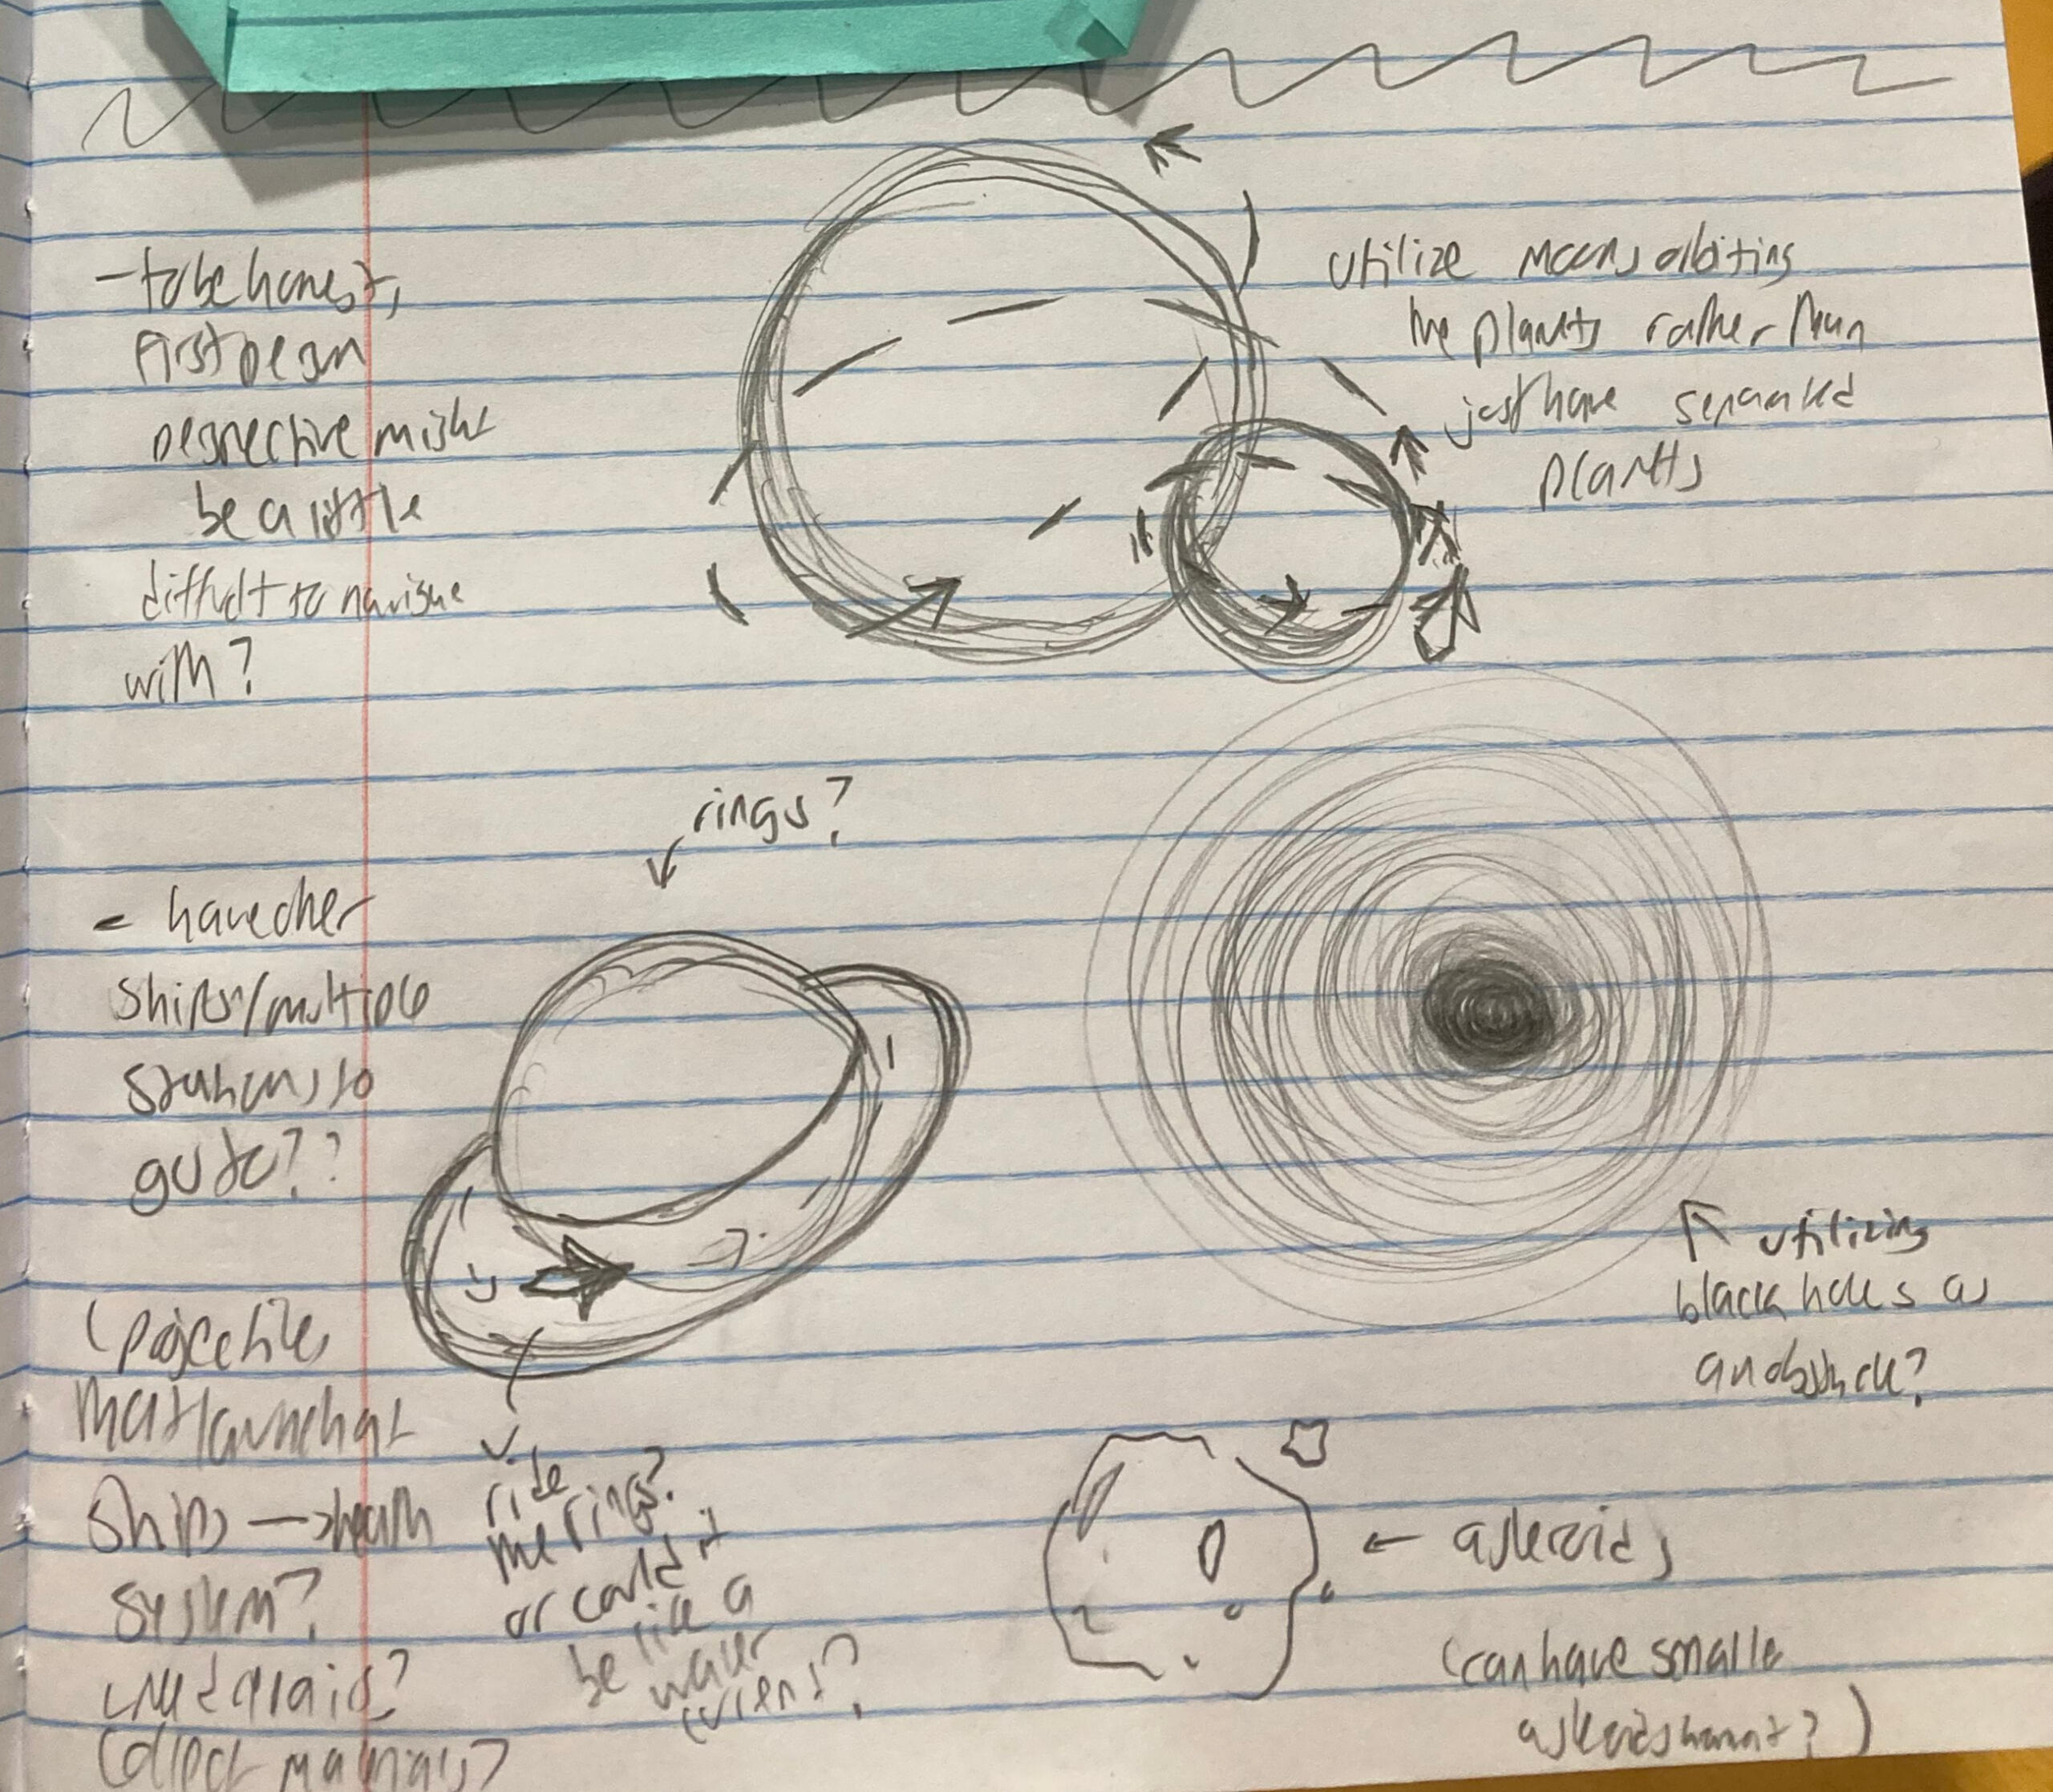 - to be honest,
first person
perspective might
be a little
difficult to navigate
with?
utilize moons orbiting
the planets rather than
just have separated
planets
rings?
- have other
ships/multiple
stations to
go to??
(projectiles
that launch at
ships → health
system?
need repairs?
collect materials?
ride
the rings?
or could it
be like a
water
current?
utilizing
black holes as
an obstacle?
← asteroids
(can have smaller
asteroids
)